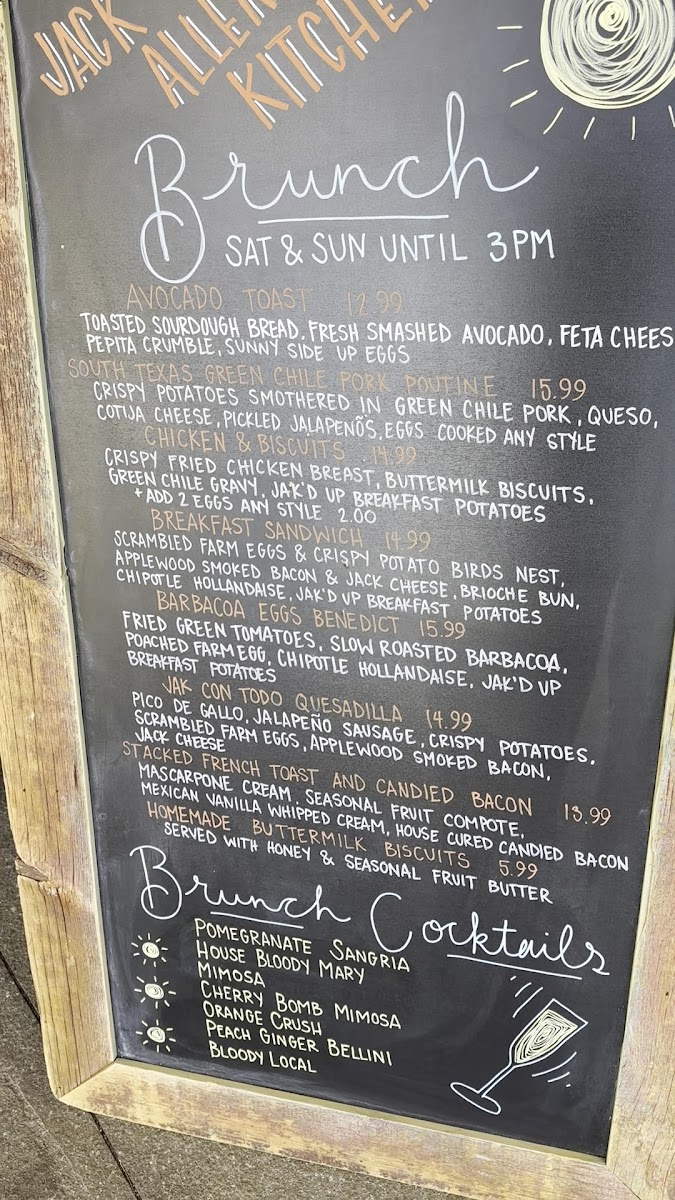 JACK
ALLEN
KITCHEN
Brunch
SAT & SUN UNTIL 3PM
AVOCADO TOAST 12.99
TOASTED SOURDOUGH BREAD, FRESH SMASHED AVOCADO, FETA CHEES
PEPITA CRUMBLE, SUNNY SIDE UP EGGS
SOUTH TEXAS GREEN CHILE PORK POUTINE 15.99
CRISPY POTATOES SMOTHERED IN GREEN CHILE PORK, QUESO,
COTIJA CHEESE, PICKLED JALAPENÕS, EGGS COOKED ANY STYLE
CHICKEN & BISCUITS 14.99
CRISPY FRIED CHICKEN BREAST, BUTTERMILK BISCUITS,
GREEN CHILE GRAVY, JAK'D UP BREAKFAST POTATOES
+ ADD 2 EGGS ANY STYLE 2.00
BREAKFAST SANDWICH 14.99
SCRAMBLED FARM EGGS & CRISPY POTATO BIRDS NEST,
APPLEWOOD SMOKED BACON & JACK CHEESE, BRIOCHE BUN,
CHIPOTLE HOLLANDAISE, JAK'D UP BREAKFAST POTATOES
BARBACOA EGGS BENEDICT 15.99
FRIED GREEN TOMATOES, SLOW ROASTED BARBACOA,
POACHED FARM EGG, CHIPOTLE HOLLANDAISE, JAK'D UP
BREAKFAST POTATOES
JAK CON TODO QUESADILLA 14.99
PICO DE GALLO, JALAPEÑO SAUSAGE, CRISPY POTATOES,
SCRAMBLED FARM EGGS, APPLEWOOD SMOKED BACON,
JACK CHEESE
STACKED FRENCH TOAST AND CANDIED BACON 13.99
MASCARPONE CREAM, SEASONAL FRUIT COMPOTE,
MEXICAN VANILLA WHIPPED CREAM, HOUSE CURED CANDIED BACON
HOMEMADE BUTTERMILK BISCUITS 5.99
SERVED WITH HONEY & SEASONAL FRUIT BUTTER
Brunch Cocktails
POMEGRANATE SANGRIA
HOUSE BLOODY MARY
MIMOSA
CHERRY BOMB MIMOSA
ORANGE CRUSH
PEACH GINGER BELLINI
BLOODY LOCAL